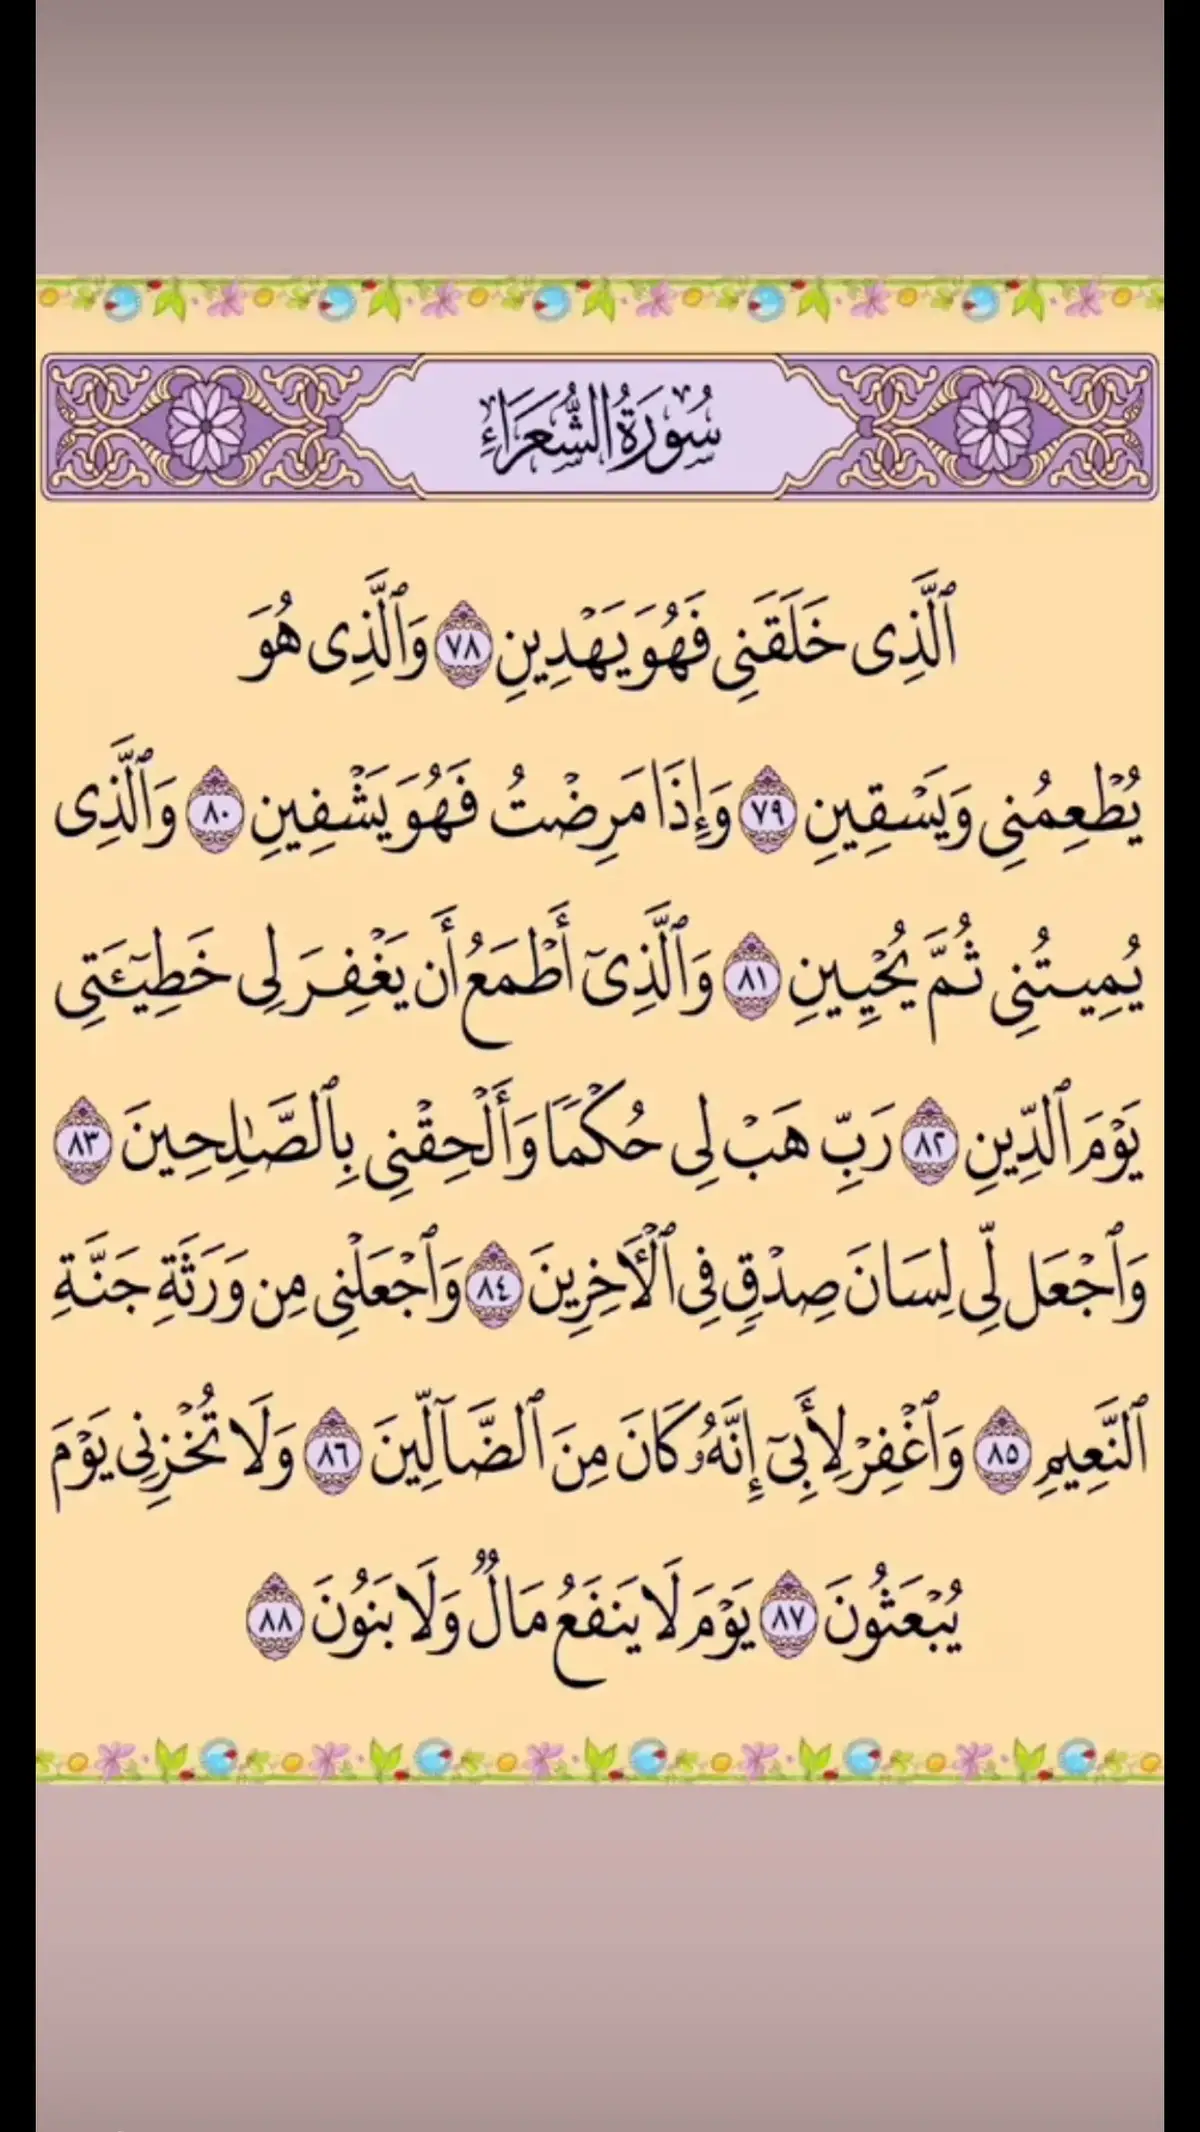 سُورَةُ الشُّعَرَاءِ
ٱلَّذِى خَلَقَنِى فَهُوَ يَهْدِينِ ٧٨ وَٱلَّذِى هُوَ
يُطْعِمُنِى وَيَسْقِينِ ٧٩ وَإِذَا مَرِضْتُ فَهُوَ يَشْفِينِ ٨٠ وَٱلَّذِى
يُمِيتُنِى ثُمَّ يُحْيِينِ ٨١ وَٱلَّذِىٓ أَطْمَعُ أَن يَغْفِرَ لِى خَطِيٓـَٔتِى
يَوْمَ ٱلدِّينِ ٨٢ رَبِّ هَبْ لِى حُكْمًا وَأَلْحِقْنِى بِٱلصَّـٰلِحِينَ ٨٣
وَٱجْعَل لِّى لِسَانَ صِدْقٍ فِى ٱلْـَٔاخِرِينَ ٨٤ وَٱجْعَلْنِى مِن وَرَثَةِ جَنَّةِ
ٱلنَّعِيمِ ٨٥ وَٱغْفِرْ لِأَبِىٓ إِنَّهُۥ كَانَ مِنَ ٱلضَّآلِّينَ ٨٦ وَلَا تُخْزِنِى يَوْمَ
يُبْعَثُونَ ٨٧ يَوْمَ لَا يَنفَعُ مَالٌ وَلَا بَنُونَ ٨٨